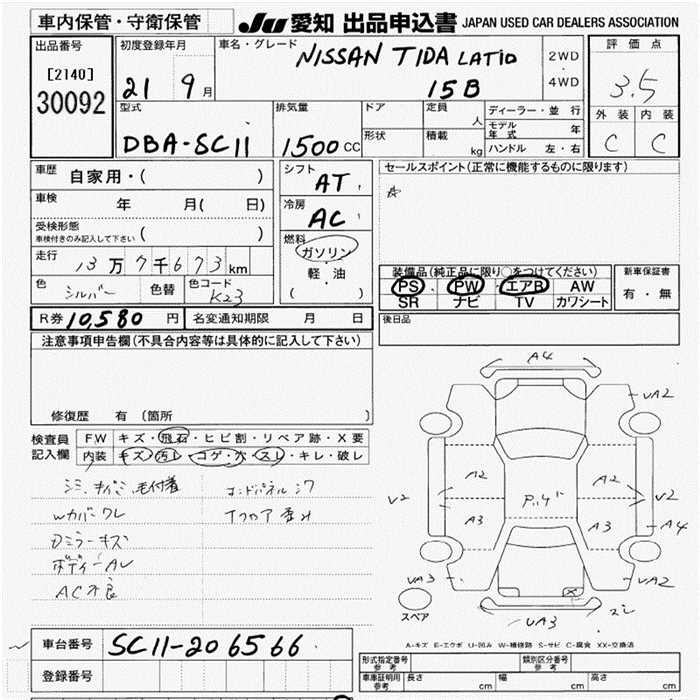 車内保管・守衛保管
JU 愛知 出品申込書 JAPAN USED CAR DEALERS ASSOCIATION
出品番号
[2140]
30092
初度登録年月
21 9月
車名・グレード
NISSAN TIDA LATIO
15B
2WD
・
4WD
評価点
3.5
外装 内装
C C
型式
DBA-SC11
排気量
1500 CC
ドア
形状
定員 人
積載 kg
ディーラー・並行
モデル年式 年
ハンドル 左・右
車歴 自家用・( )
車検 年 月( 日)
受検形態
車検付きのみ記入して下さい ( )
走行 13万7千673km
色 シルバー 色替 色コード K23
シフト
AT
冷房
AC
燃料
ガソリン
軽・油
( )
セールスポイント(正常に機能するものに限ります)
☆
装備品(純正品に限り○をつけてください)
PS PW エアB AW
SR ナビ TV カワシート
新車保証書
有・無
R券 10,580円 名変通知期限 月 日
後日品
注意事項申告欄(不具合内容等は具体的に記入して下さい)
修復歴 有 (箇所 )
検査員記入欄
F.W キズ・飛石・ヒビ割・リペア跡・X要
内装 キズ・汚レ・コゲ・穴・スレ・キレ・破レ
Wカバーワレ
Dミラーキズ
ボディーAU
AC不良
A4
UA2
A2 A2
A3 A3
V2 V2
A4
UA3 UA2
UA3
スレ
スペア
A-キズ E-エクボ U-凹み W-補修跡 S-サビ C-腐食 XX-交換済
車台番号 SC11-206566
登録番号
形式指定番号
参考
類別区分番号
参考
車庫証明用
参考
長さ cm 幅 cm 高さ cm